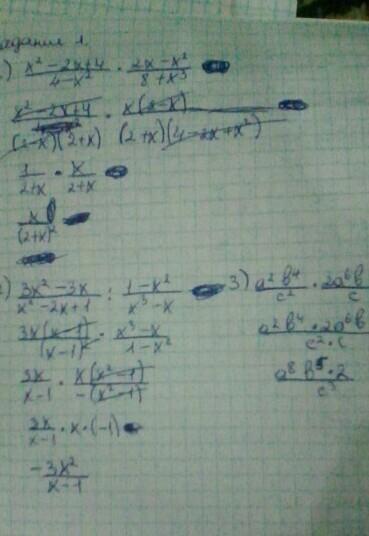 задание 1.
) x² - 2x + 4 / 4 - x² · 2x - x² / 8 + x³
x² - 2x + 4 / (2 - x)(2 + x) · x(2 - x) / (2 + x)(4 - 2x + x²)
1 / 2 + x · x / 2 + x
x / (2 + x)²
) 3x² - 3x / x² - 2x + 1 : 1 - x² / x³ - x
3x(x - 1) / (x - 1)² · x³ - x / 1 - x²
3x / x - 1 · x(x² - 1) / -(x² - 1)
3x / x - 1 · x · (-1)
-3x² / x - 1
3) a² b⁴ / c² · 2a⁶ b / c
a² b⁴ · 2a⁶ b / c² · c
a⁸ b⁵ · 2 / c³